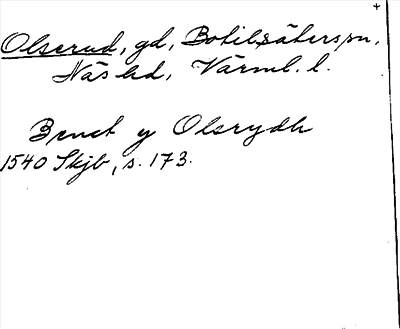 Olserud, gd, Botilsäterspn.
Näs hd, Värml. l.
Benct y Olsrydh
1540 Skjb, s. 173.